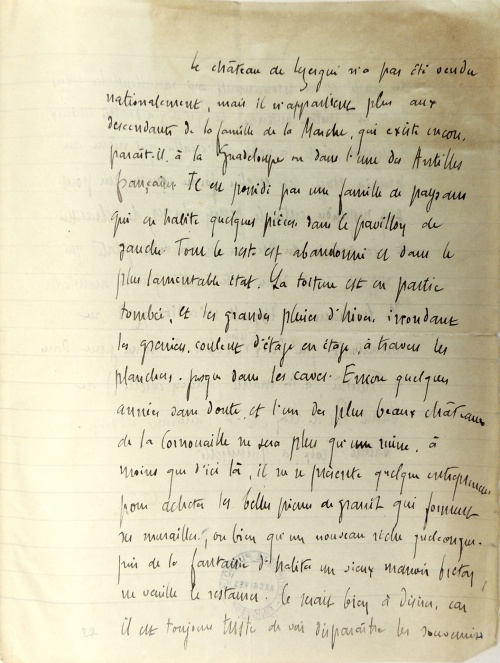 Le château de Lezergui n'a pas été vendu
nationalement, mais il n'appartient plus aux
descendants de la famille de la Marche, qui existe encore,
paraît-il, à la Guadeloupe ou dans l'une des Antilles
françaises. Il est possédé par une famille de paysans
qui en habite quelques pièces dans le pavillon de
gauche. Tout le reste est abandonné et dans le
plus lamentable état. La toiture est en partie
tombée, et les grandes pluies d'hiver, inondant
les greniers, coulent d'étage en étage, à travers les
planchers, jusque dans les caves. Encore quelques
années sans doute, et l'un des plus beaux châteaux
de la Cornouaille ne sera plus qu'une ruine, à
moins que d'ici là, il ne se présente quelque entrepreneur
pour acheter les belles pierres de granit qui forment
ses murailles, ou bien qu'un nouveau riche quelconque,
pris de la fantaisie d'habiter un vieux manoir breton,
ne veuille le restaurer. Ce serait bien à désirer, car
il est toujours triste de voir disparaître les souvenirs
ARCHIVES